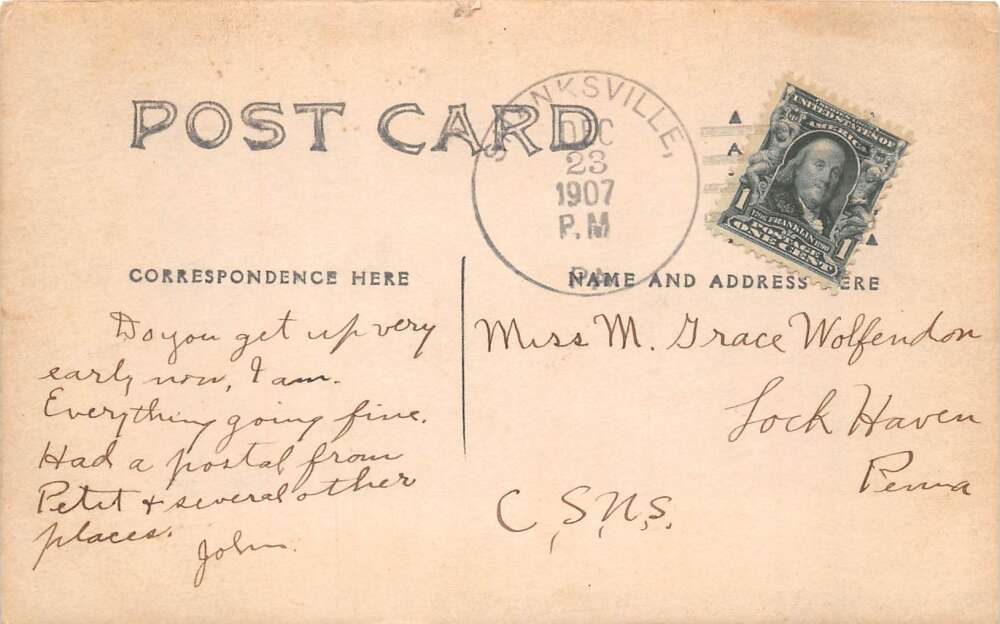 POST CARD
SHANKSVILLE,
DEC
23
1907
P.M
PA.
UNITED STATES OF
AMERICA
1 1
FRANKLIN
POSTAGE
ONE CENT
CORRESPONDENCE HERE
NAME AND ADDRESS HERE
Do you get up very
early now, I am.
Everything going fine.
Had a postal from
Petit + several other
places.
John.
Miss M. Grace Wolfendon
Lock Haven
Penna
C,S,N,S,